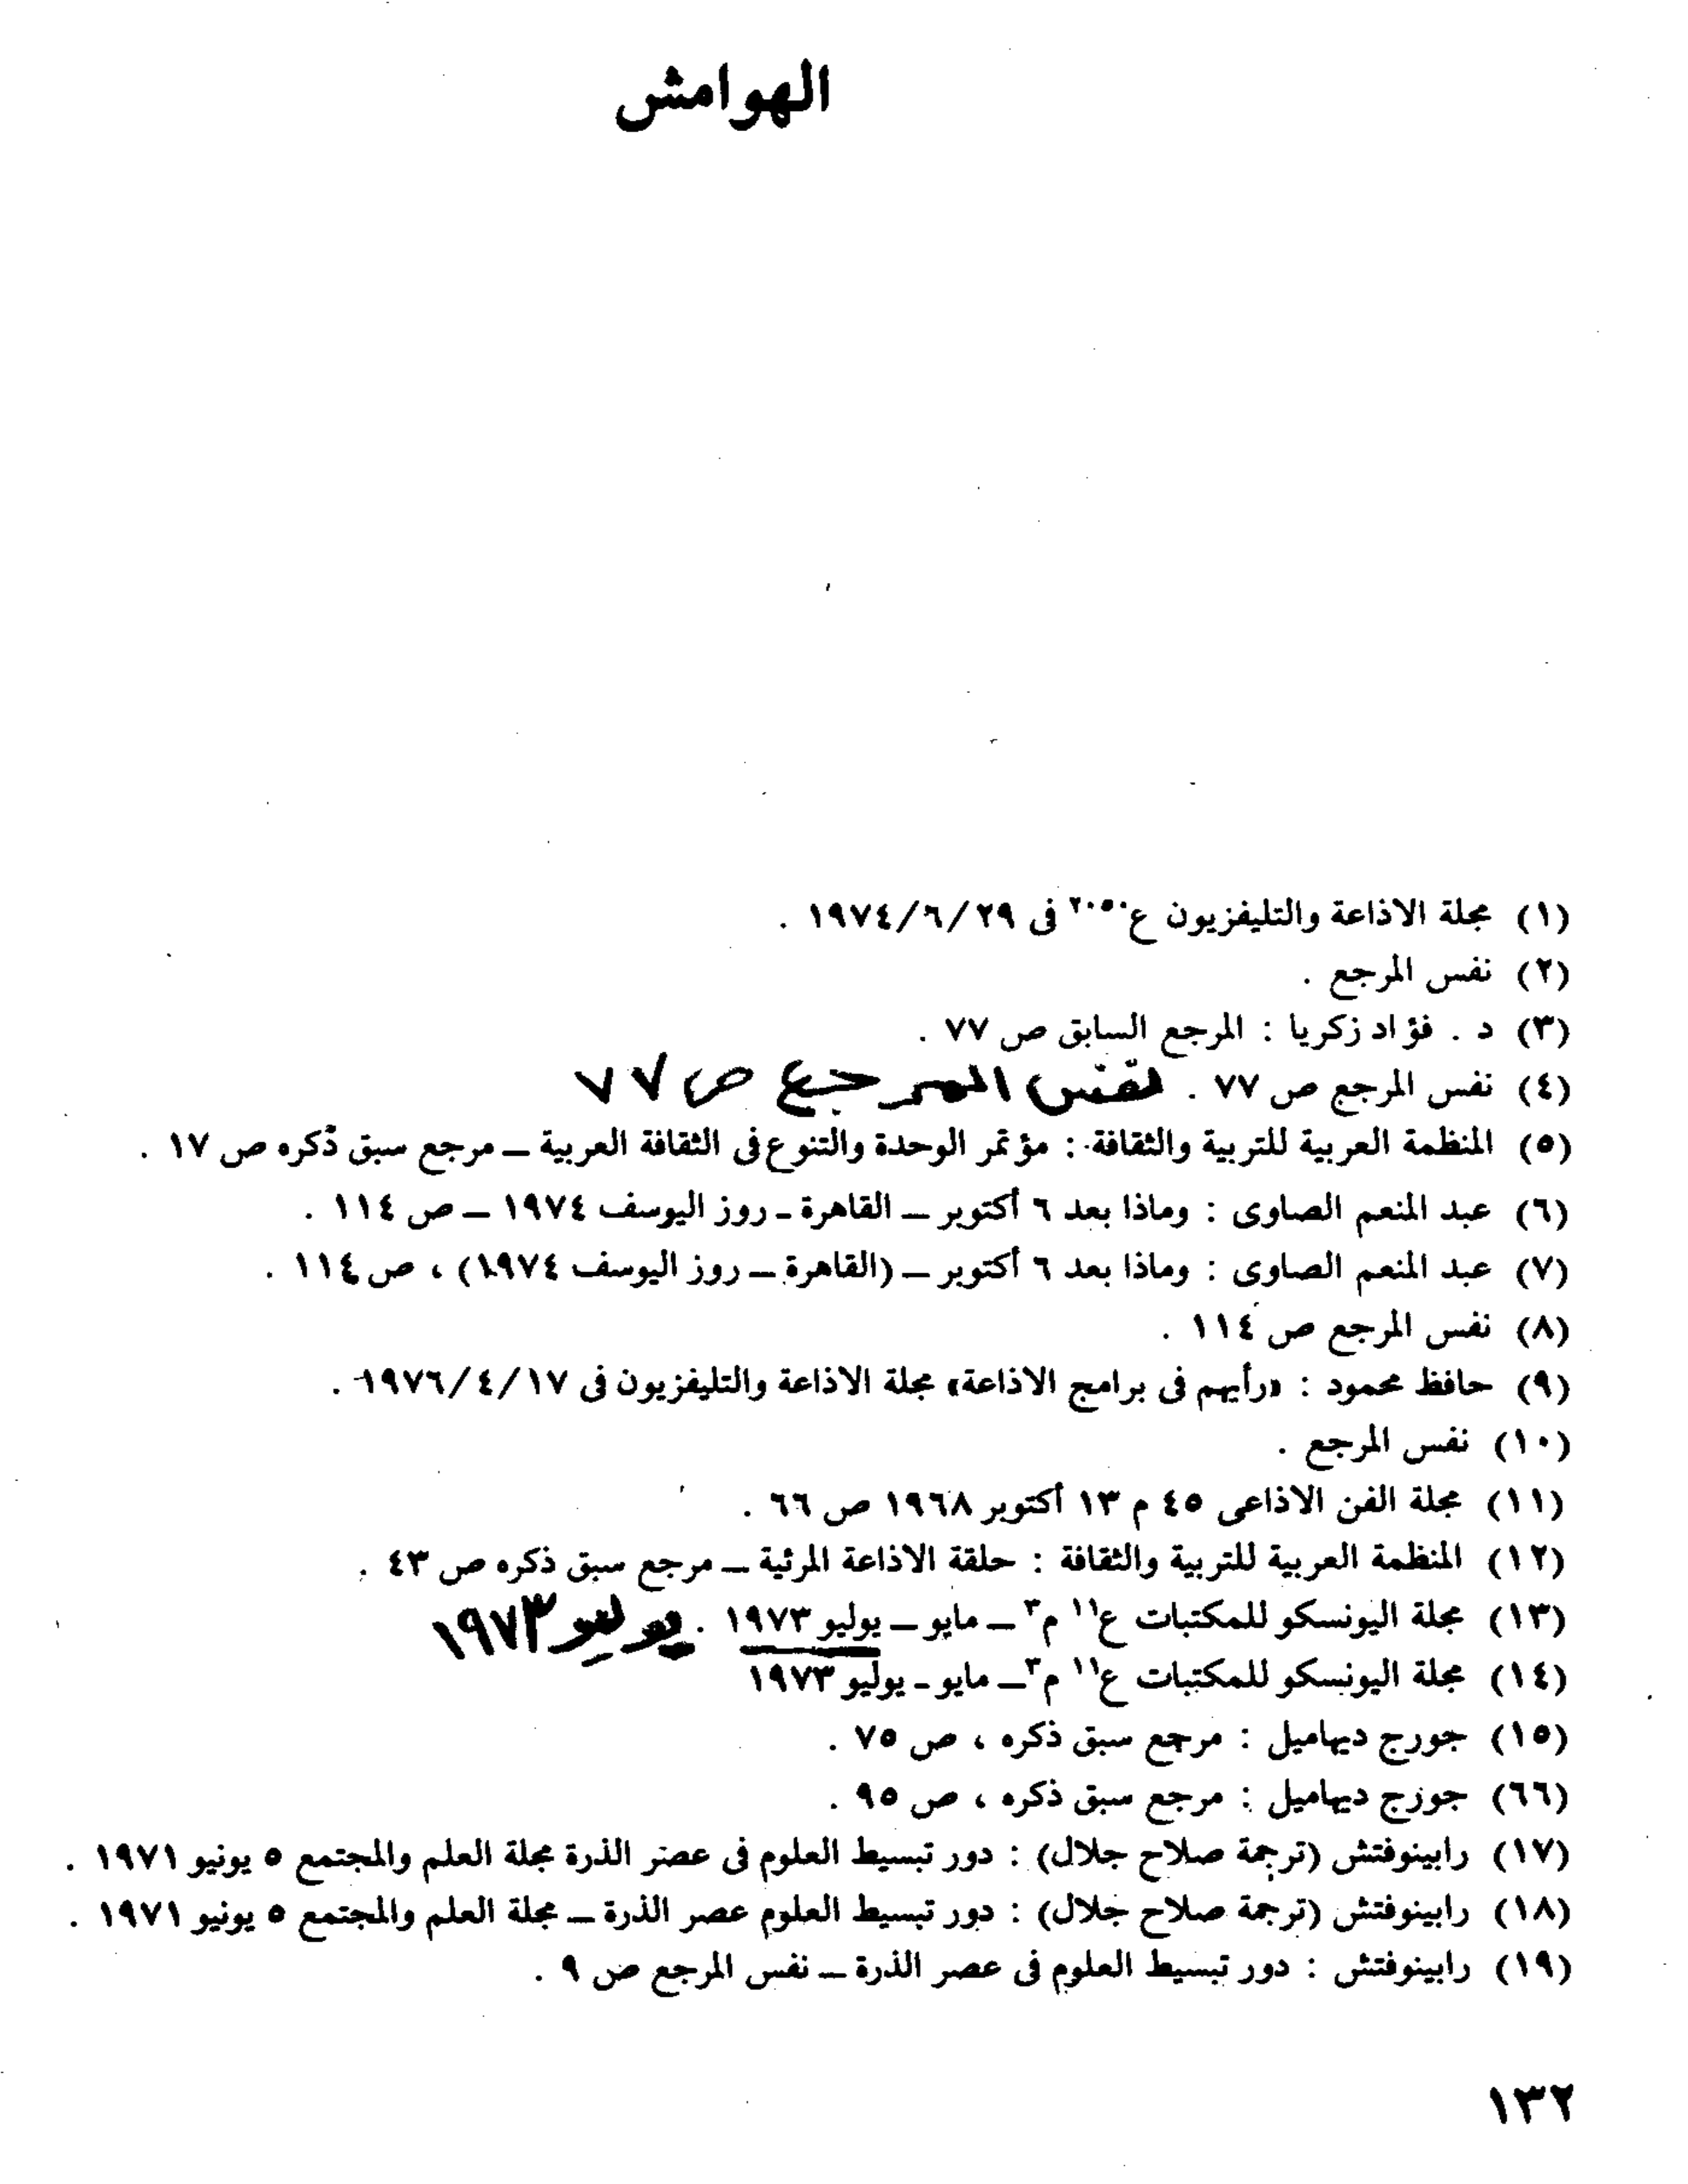 الهوامش
(١) مجلة الاذاعة والتليفزيون ع٢٠٥٠ فى ٢٩/٦/١٩٧٤ .
(٢) نفس المرجع .
(٣) د . فؤاد زكريا : المرجع السابق ص ٧٧ .
(٤) نفس المرجع ص ٧٧ . نفس المرجع ص ٧٧
(٥) المنظمة العربية للتربية والثقافة : مؤتمر الوحدة والتنوع فى الثقافة العربية ــ مرجع سبق ذكره ص ١٧ .
(٦) عبد المنعم الصاوى : وماذا بعد ٦ أكتوبر ــ القاهرة ـ روز اليوسف ١٩٧٤ ــ ص ١١٤ .
(٧) عبد المنعم الصاوى : وماذا بعد ٦ أكتوبر ــ (القاهرة ــ روز اليوسف ١٩٧٤) ، ص ١١٤ .
(٨) نفس المرجع ص ١١٤ .
(٩) حافظ محمود : «رأيهم فى برامج الاذاعة» مجلة الاذاعة والتليفزيون فى ١٧/٤/١٩٧٦ .
(١٠) نفس المرجع .
(١١) مجلة الفن الاذاعى ٤٥ م ١٣ أكتوبر ١٩٦٨ ص ٦٦ .
(١٢) المنظمة العربية للتربية والثقافة : حلقة الاذاعة المرئية ــ مرجع سبق ذكره ص ٤٣ .
(١٣) مجلة اليونسكو للمكتبات ع١١ م٣ ــ مايو ــ يوليو ١٩٧٣ . يوليو ١٩٧٣
(١٤) مجلة اليونسكو للمكتبات ع١١ م٣ ــ مايو ـ يوليو ١٩٧٣
(١٥) جورج ديهاميل : مرجع سبق ذكره ، ص ٧٥ .
(٦٦) جورج ديهاميل : مرجع سبق ذكره ، ص ٩٥ .
(١٧) رابينوفتش (ترجمة صلاح جلال) : دور تبسيط العلوم فى عصر الذرة مجلة العلم والمجتمع ٥ يونيو ١٩٧١ .
(١٨) رابينوفتش (ترجمة صلاح جلال) : دور تبسيط العلوم عصر الذرة ــ مجلة العلم والمجتمع ٥ يونيو ١٩٧١ .
(١٩) رابينوفتش : دور تبسيط العلوم فى عصر الذرة ــ نفس المرجع ص ٩ .
١٣٢